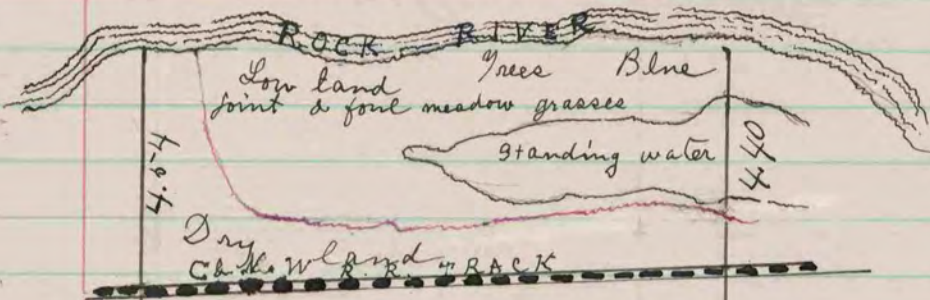 ROCK RIVER
Low land Trees Blue
joint & foul meadow grasses
Standing water
404
440
Dry land
C. & N. W. R. R. TRACK